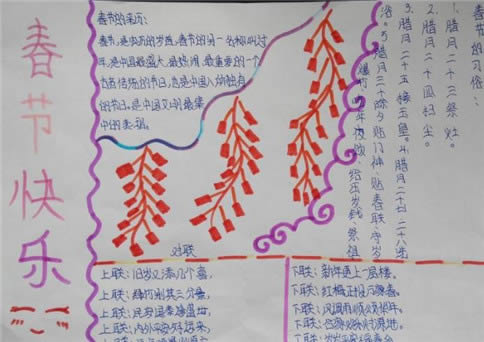 春节快乐
春节的来历:
春节,是农历的岁首,春节的另一名称叫过
年,是中国最盛大、最热闹、最重要的一个
古老传统的节日,也是中国人的独有
的节日,是中国文明最集
中的表现。
春节的习俗
1、腊月二十三祭灶。
2、腊月二十四扫尘。
3、腊月二十五接玉皇。4、腊月二十七、二十八洗
浴。5、腊月三十除夕贴门神、贴春联、守岁、
爆竹、年夜饭、给压岁钱、祭祖
对联
上联:旧岁又添几个喜,
上联:绿竹别其三分景,
上联:民安国泰逢盛世,
上联:内外平安好运来,
下联:新年更上一层楼。
下联:红梅正报万家春。
下联:风调雨顺颂华年。